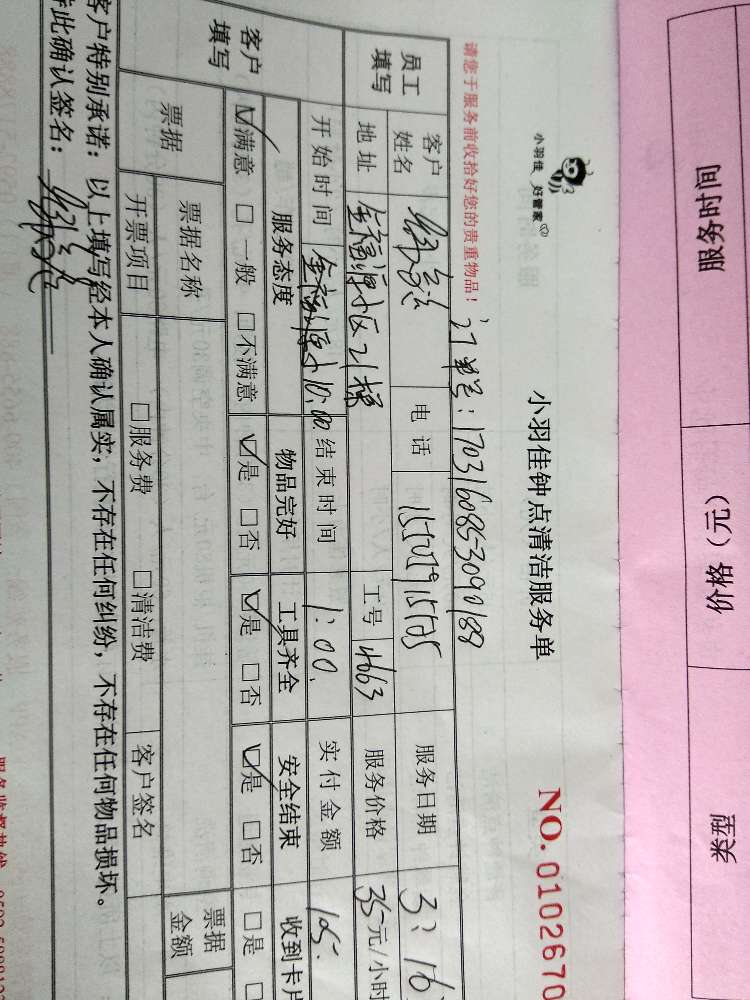 小羽佳 好管家
小羽佳钟点清洁服务单
NO. 0102670
请您于服务前收拾好您的贵重物品！
订单号：1703160853090188
员工填写
客户姓名 电话 服务日期 3? 16
地址 金福源小区21栋 工号 4663 服务价格 35元/小时
开始时间 10:00 结束时间 1:00. 实付金额 105.
客户填写
服务态度 物品完好 工具齐全 安全结束 收到卡片
☑满意 □一般 □不满意 ☑是 □否 ☑是 □否 ☑是 □否 □是
票据 票据名称 票据金额
开票项目 □服务费 □清洁费 客户签名
客户特别承诺：以上填写经本人确认属实，不存在任何纠纷，不存在任何物品损坏。
特此确认签名：
服务时间 价格（元） 类型